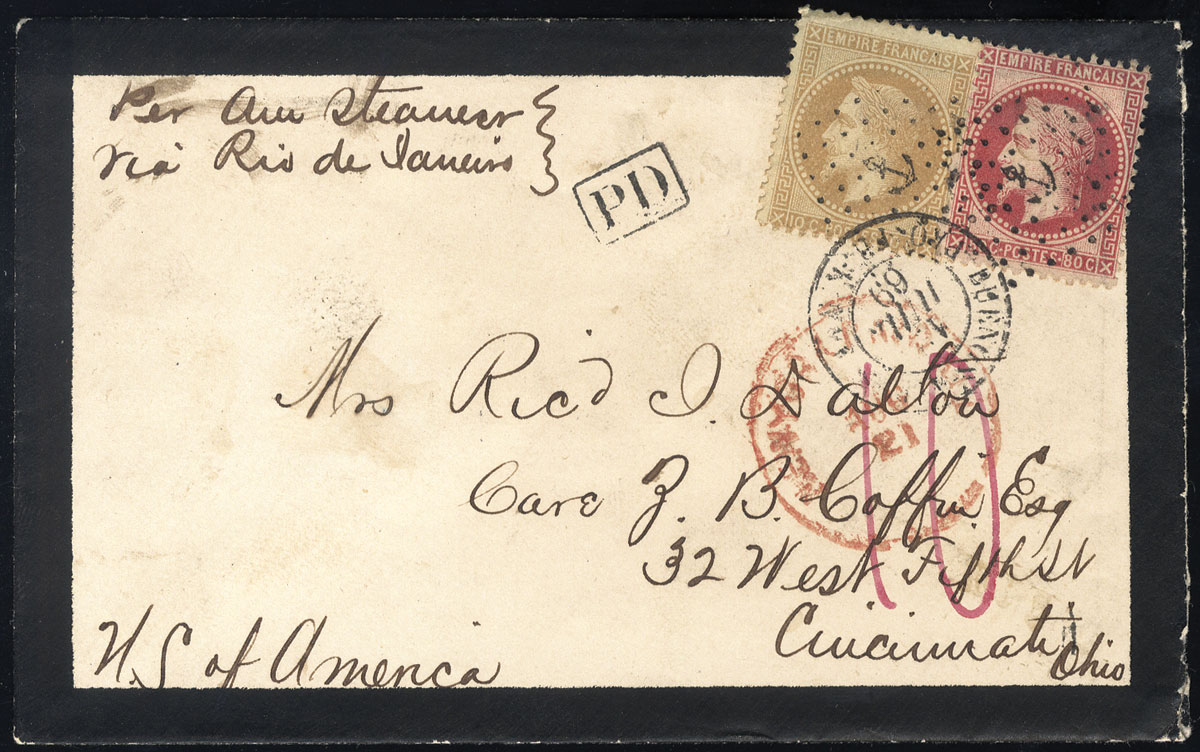 Per Am Steamer
via Rio de Janeiro
PD
EMPIRE FRANÇAIS
EMPIRE FRANÇAIS
10 C
C·POSTES·80C
69
Mrs Ric'd J. Dalton
10
21
Care Z. B. Coffin Esq
32 West Fifth St
Cincinnati
Ohio
U.S of America